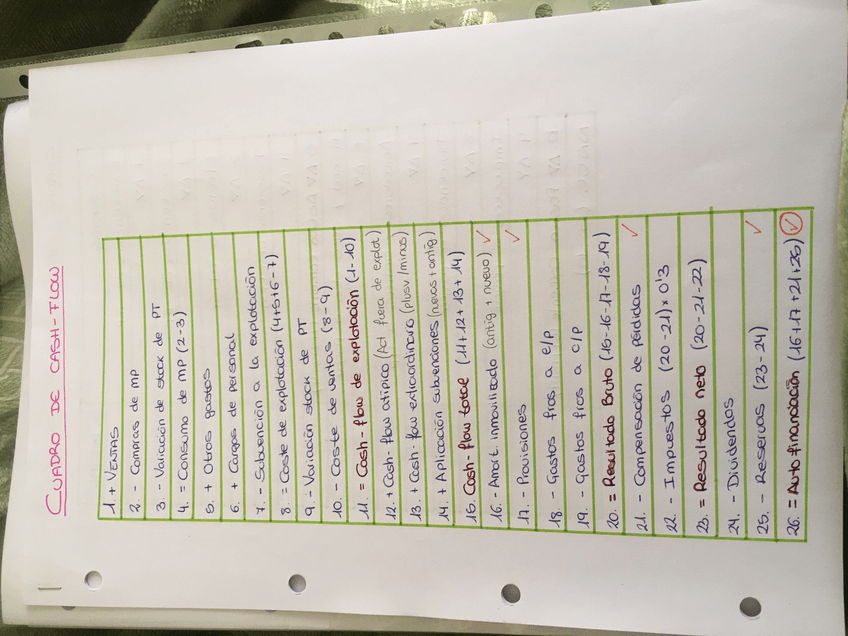 CUADRO DE CASH-FLOW
1. + VENTAS
2. - Compras de MP
3. - Variación de stock de PT
4. = Consumo de MP (2-3)
5. + Otros gastos
6. + Cargos de personal
7. - Subvención a la explotación
8. = Coste de explotación (4+5+6-7)
9. - Variación stock de PT
10. - Coste de ventas (8-9)
11. = Cash-flow de explotación (1-10)
12. + Cash-flow atípico (Act fuera de explot)
13. + Cash-flow extraordinario (plusv/minus)
14. + Aplicación subvenciones (nuevas+antig)
15. Cash-flow total (11+12+13+14)
16. - Amort. inmovilizado (antig + nuevo) ✓
17. - Provisiones ✓
18. - Gastos fros a e/p
19. - Gastos fros a c/p
20. = Resultado Bruto (15-16-17-18-19)
21. - Compensación de pérdidas ✓
22. - Impuestos (20-21) x 0'3
23. = Resultado neto (20-21-22)
24. - Dividendos
25. - Reservas (23-24) ✓
26. = Autofinanciación (16+17+21+25) ✓